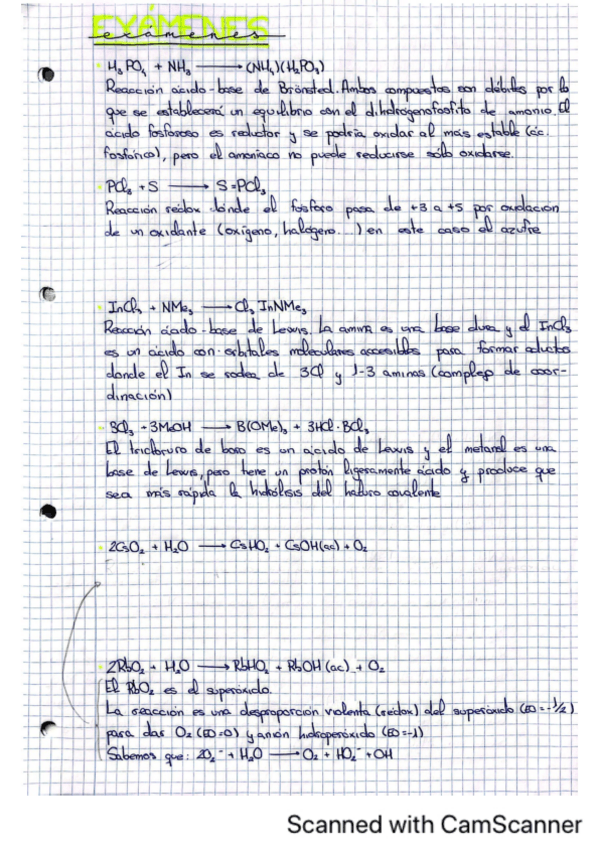 EXÁMENES
exámenes
H₃PO₃ + NH₃ ⟶ (NH₄)(H₂PO₃)
Reacción ácido-base de Brönsted. Ambos compuestos son débiles por lo
que se establecerá un equilibrio con el dihidrogenofosfito de amonio. El
ácido fosforoso es reductor y se podría oxidar al más estable (ác.
fosfórico), pero el amoniaco no puede reducirse sólo oxidarse.
PCl₃ + S ⟶ S=PCl₃
Reacción redox dónde el fósforo pasa de +3 a +5 por oxidación
de un oxidante (oxígeno, halógeno...) en este caso el azufre
InCl₃ + NMe₃ ⟶ Cl₃InNMe₃
Reacción ácido-base de Lewis. La amina es una base dura y el InCl₃
es un ácido con orbitales moleculares accesibles para formar aductos
donde el In se rodea de 3Cl y 1-3 aminas (complejo de coor-
dinación)
BCl₃ + 3MeOH ⟶ B(OMe)₃ + 3HCl · BCl₃
El tricloruro de boro es un ácido de Lewis y el metanol es una
base de Lewis, pero tiene un protón ligeramente ácido y produce que
sea más rápida la hidrólisis del haluro covalente
2CsO₂ + H₂O ⟶ CsHO₂ + CsOH(ac) + O₂
2RbO₂ + H₂O ⟶ RbHO₂ + RbOH (ac) + O₂
El RbO₂ es el superóxido.
La reacción es una desproporción violenta (redox) del superóxido (EO=-½)
para dar O₂ (EO=0) y anión hidroperóxido (EO=-1)
Sabemos que: 2O₂⁻ + H₂O ⟶ O₂ + HO₂⁻ + OH
Scanned with CamScanner